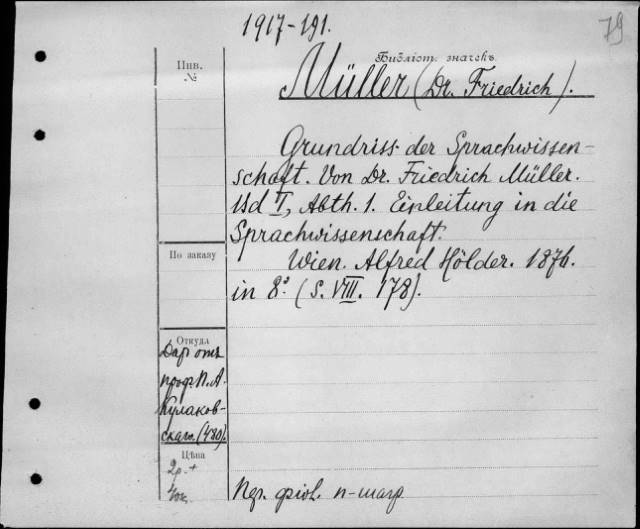 1917-191.
79
Инв.
№
Библіот. значекъ
Müller (Dr. Friedrich).
Grundriss der Sprachwissen-
schaft. Von Dr. Friedrich Müller.
Bd I, Abth. 1. Einleitung in die
Sprachwissenschaft.
По заказу
Wien. Alfred Hölder. 1876.
in 8° (S. VIII. 178).
Откуда
Дар отъ
проф. П. А.
Кулаков-
скаго. (480).
Цѣна
2р.